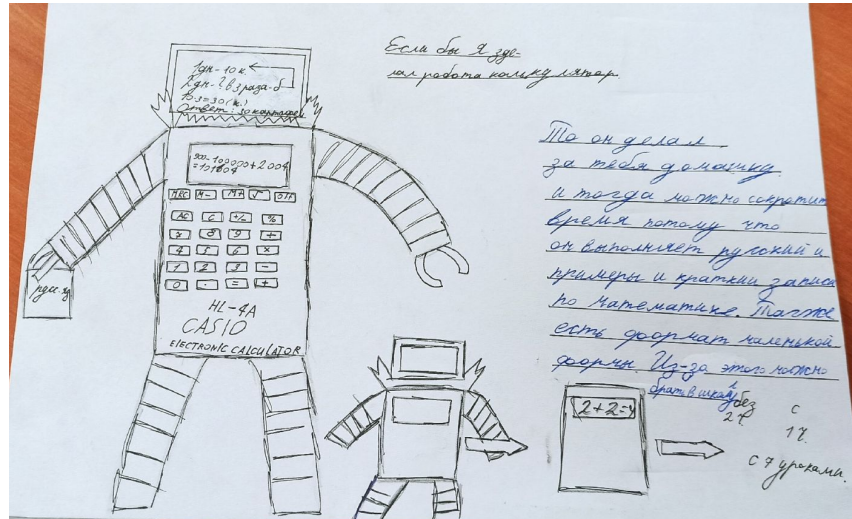 Если бы я зде-
лал робота калькулятор
1дн-10к.
2дн-?в3раза-б
10·3=30(к.)
Ответ: 30 картин
900-100000+2004
=101804
MRC M- M+ √ OFF
AC C +/- %
7 8 9 ÷
4 5 6 ×
1 2 3 -
0 . = +
HL-4A
CASIO
ELECTRONIC CALCULATOR
рус. яз
То он делал
за тебя домашку
и тогда можно сократить
время потому что
он выполняет русский и
примеры и краткии записи
по математике. Также
есть формат маленькой
формы. Из-за этого можно
брать в школу
2+2=4
без
2ч.
с
1ч.
с 7 уроками.